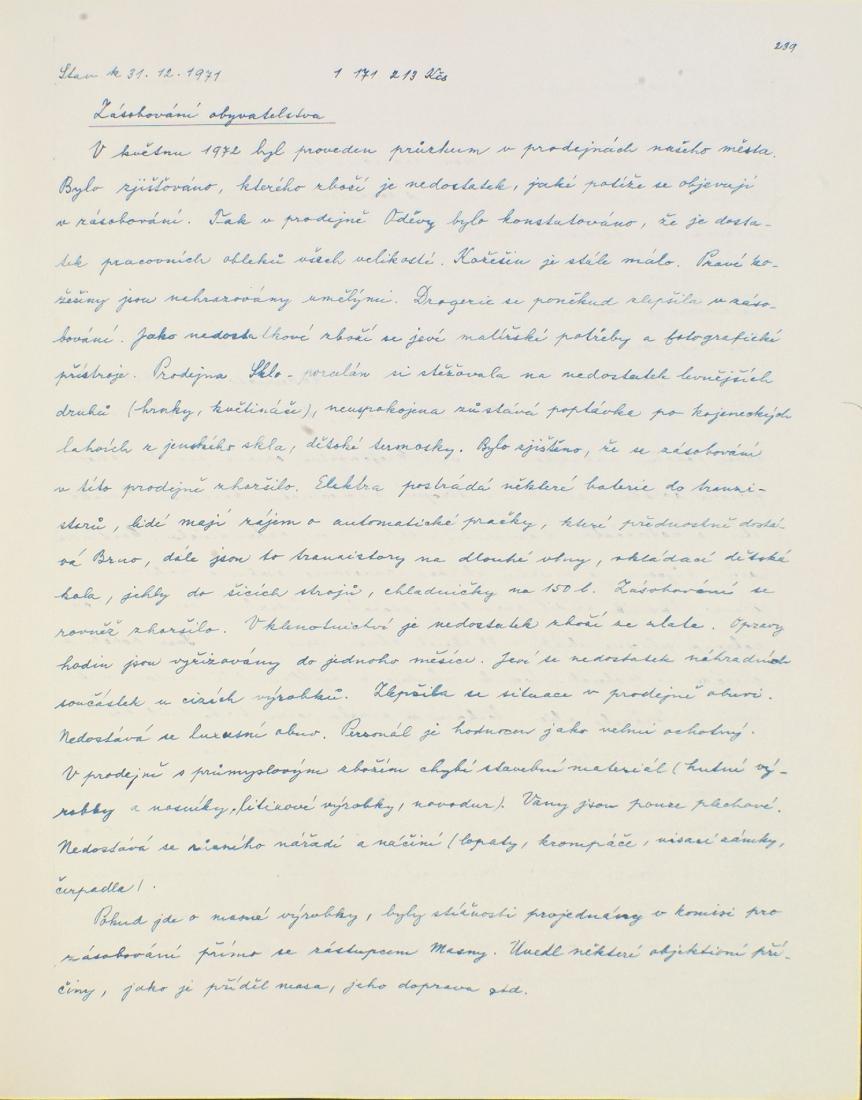 239
Stav k 31. 12. 1971 1 171 213 Kčs
Zásobování obyvatelstva
V květnu 1972 byl proveden průzkum v prodejnách našeho města.
Bylo zjišťováno, kterého zboží je nedostatek, jaké potíže se objevují
v zásobování. Tak v prodejně Oděvy bylo konstatováno, že je dosta-
tek pracovních obleků všech velikostí. Kožešin je stále málo. Pravé ko-
žešiny jsou nahrazovány umělými. Drogerie se poněkud zlepšila v záso-
bování. Jako nedostatkové zboží se jeví malířské potřeby a fotografické
přístroje. Prodejna Sklo-porcelán si stěžovala na nedostatek levnějších
druhů (hrnky, květináše), neuspokojena zůstává poptávka po kojeneckých
lahvích z jenského skla, dětské termosky. Bylo zjištěno, že se zásobování
v této prodejně zhoršilo. Elektra postrádá některé baterie do tranzi-
storů, lidé mají zájem o automatické pračky, které přednostně dostá-
vá Brno, dále jsou to tranzistory na dlouhé vlny, skládací dětská
kola, jehly do šicích strojů, chladničky na 150 l. Zásobování se
rovněž zhoršilo. V klenotnictví je nedostatek zboží ze zlata. Opravy
hodin jsou vyřizovány do jednoho měsíce. Jeví se nedostatek náhradních
součástek u cizích výrobků. Zlepšila se situace v prodejně obuvi.
Nedostává se luxusní obuv. Personál je hodnocen jako velmi ochotný.
V prodejně s průmyslovým zbožím chybí stavební materiál (hutné vý-
robky a nosníky, litinové výrobky, novodur). Vany jsou pouze plechové.
Nedostává se různého nářadí a náčiní (lopaty, krompáče, visací zámky,
čerpadla).
Pokud jde o masné výrobky, byly stížnosti projednány v komisi pro
zásobování přímo se zástupcem Masny. Uvedl některé objektivní pří-
činy, jako je příděl masa, jeho doprava atd.